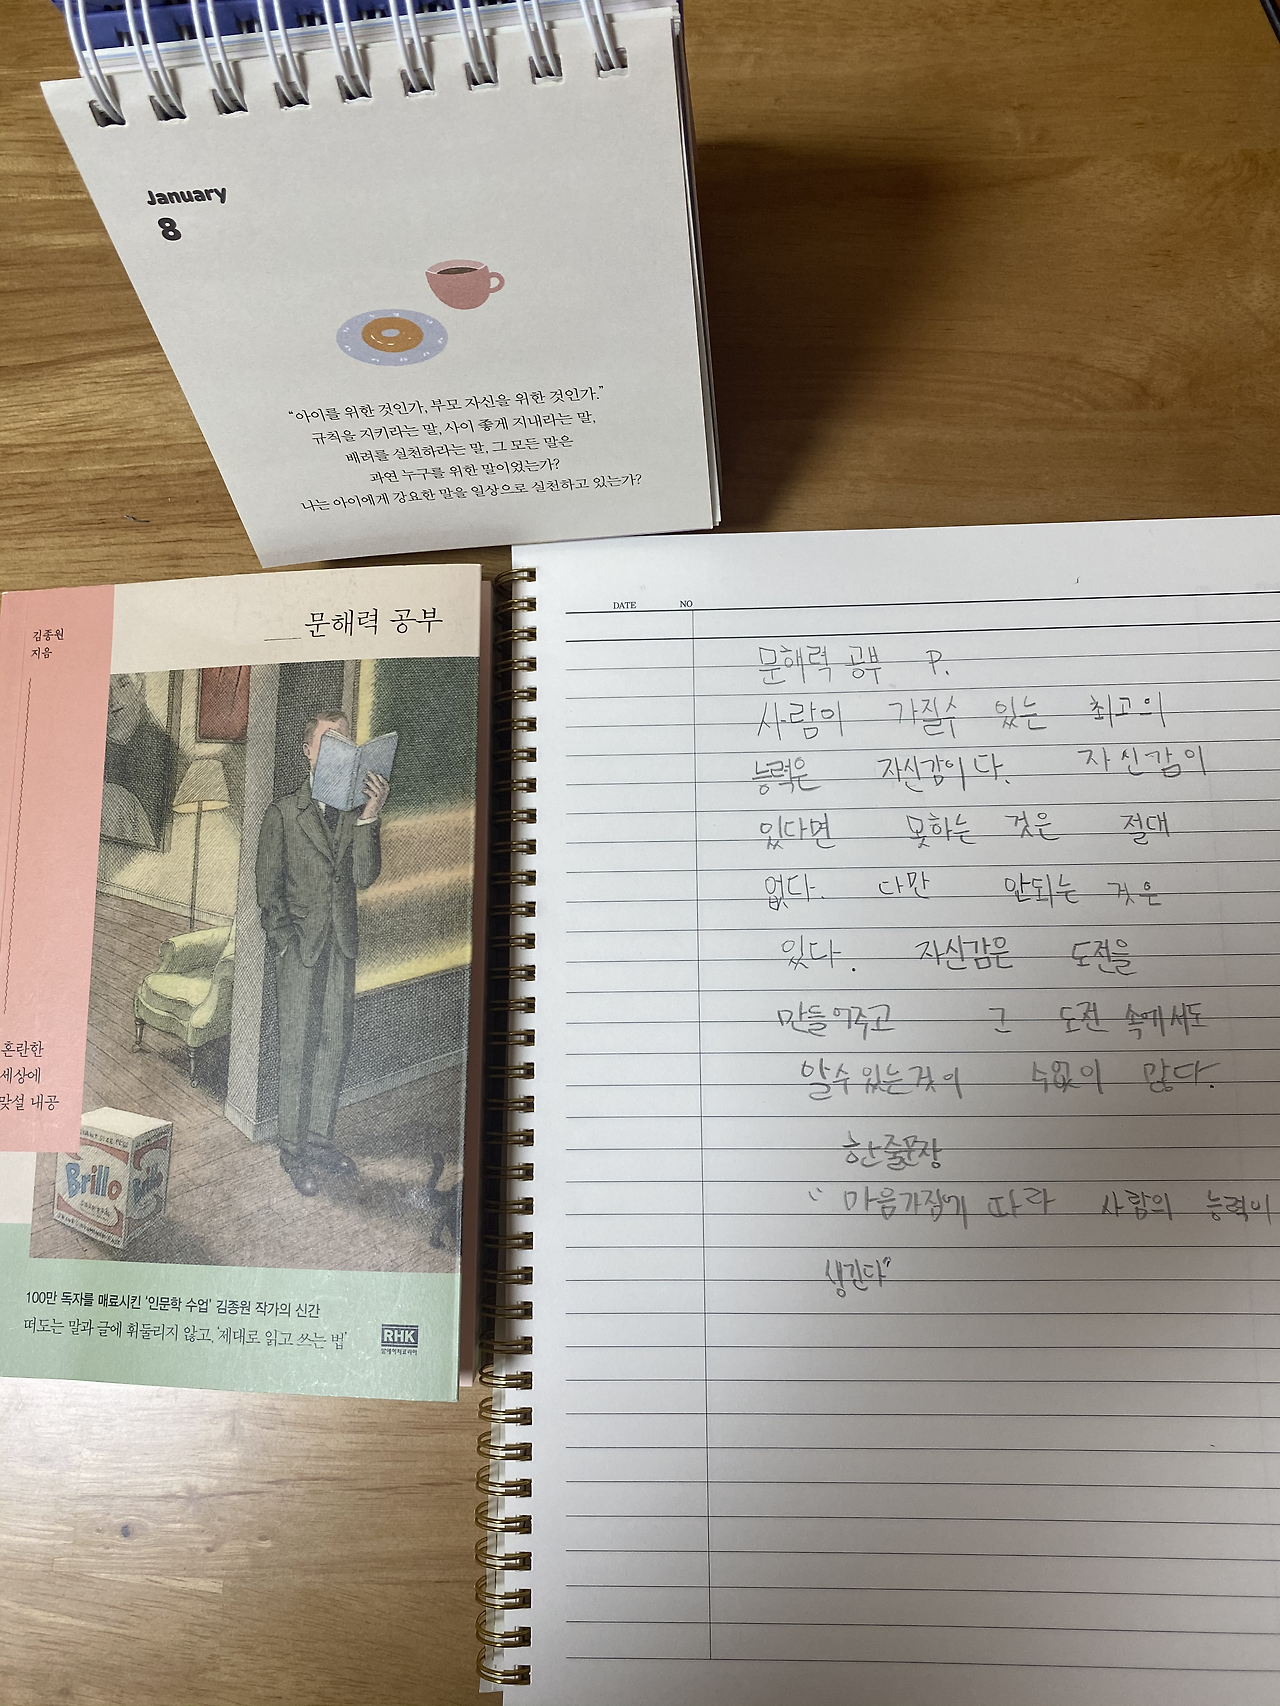 January
8
“아이를 위한 것인가, 부모 자신을 위한 것인가.”
규칙을 지키라는 말, 사이 좋게 지내라는 말,
배려를 실천하라는 말, 그 모든 말은
과연 누구를 위한 말이었는가?
나는 아이에게 강요한 말을 일상으로 실천하고 있는가?
문해력 공부
김종원
지음
혼란한
세상에
맞설 내공
Brillo
Brillo
100만 독자를 매료시킨 ‘인문학 수업’ 김종원 작가의 신간
떠도는 말과 글에 휘둘리지 않고, ‘제대로 읽고 쓰는 법’
RHK
알에이치코리아
DATE NO
문해력 공부 P.
사람이 가질수 있는 최고의
능력은 자신감이다. 자신감이
있다면 못하는 것은 절대
없다. 다만 안되는 것은
있다. 자신감은 도전을
만들어주고 그 도전 속에서도
알수있는것이 수없이 많다.
한줄문장
“마음가짐에 따라 사람의 능력이
생긴다”